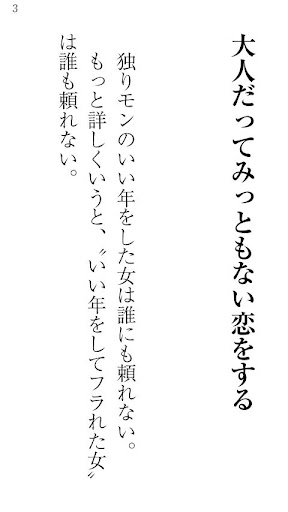 3
大人だってみっともない恋をする
独りモンのいい年をした女は誰にも頼れない。
もっと詳しくいうと、〝いい年をしてフラれた女〟
は誰も頼れない。